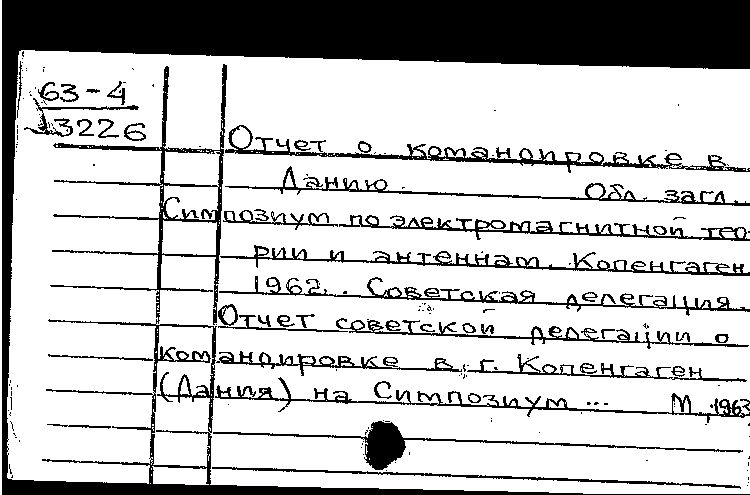 63-4
3226
Отчет о командировке в
Данию. Обл. загл.
Симпозиум по электромагнитной тео-
рии и антеннам. Копенгаген
1962. Советская делегация.
Отчет советской делегации о
командировке в г. Копенгаген
(Дания) на Симпозиум ... М., 1963